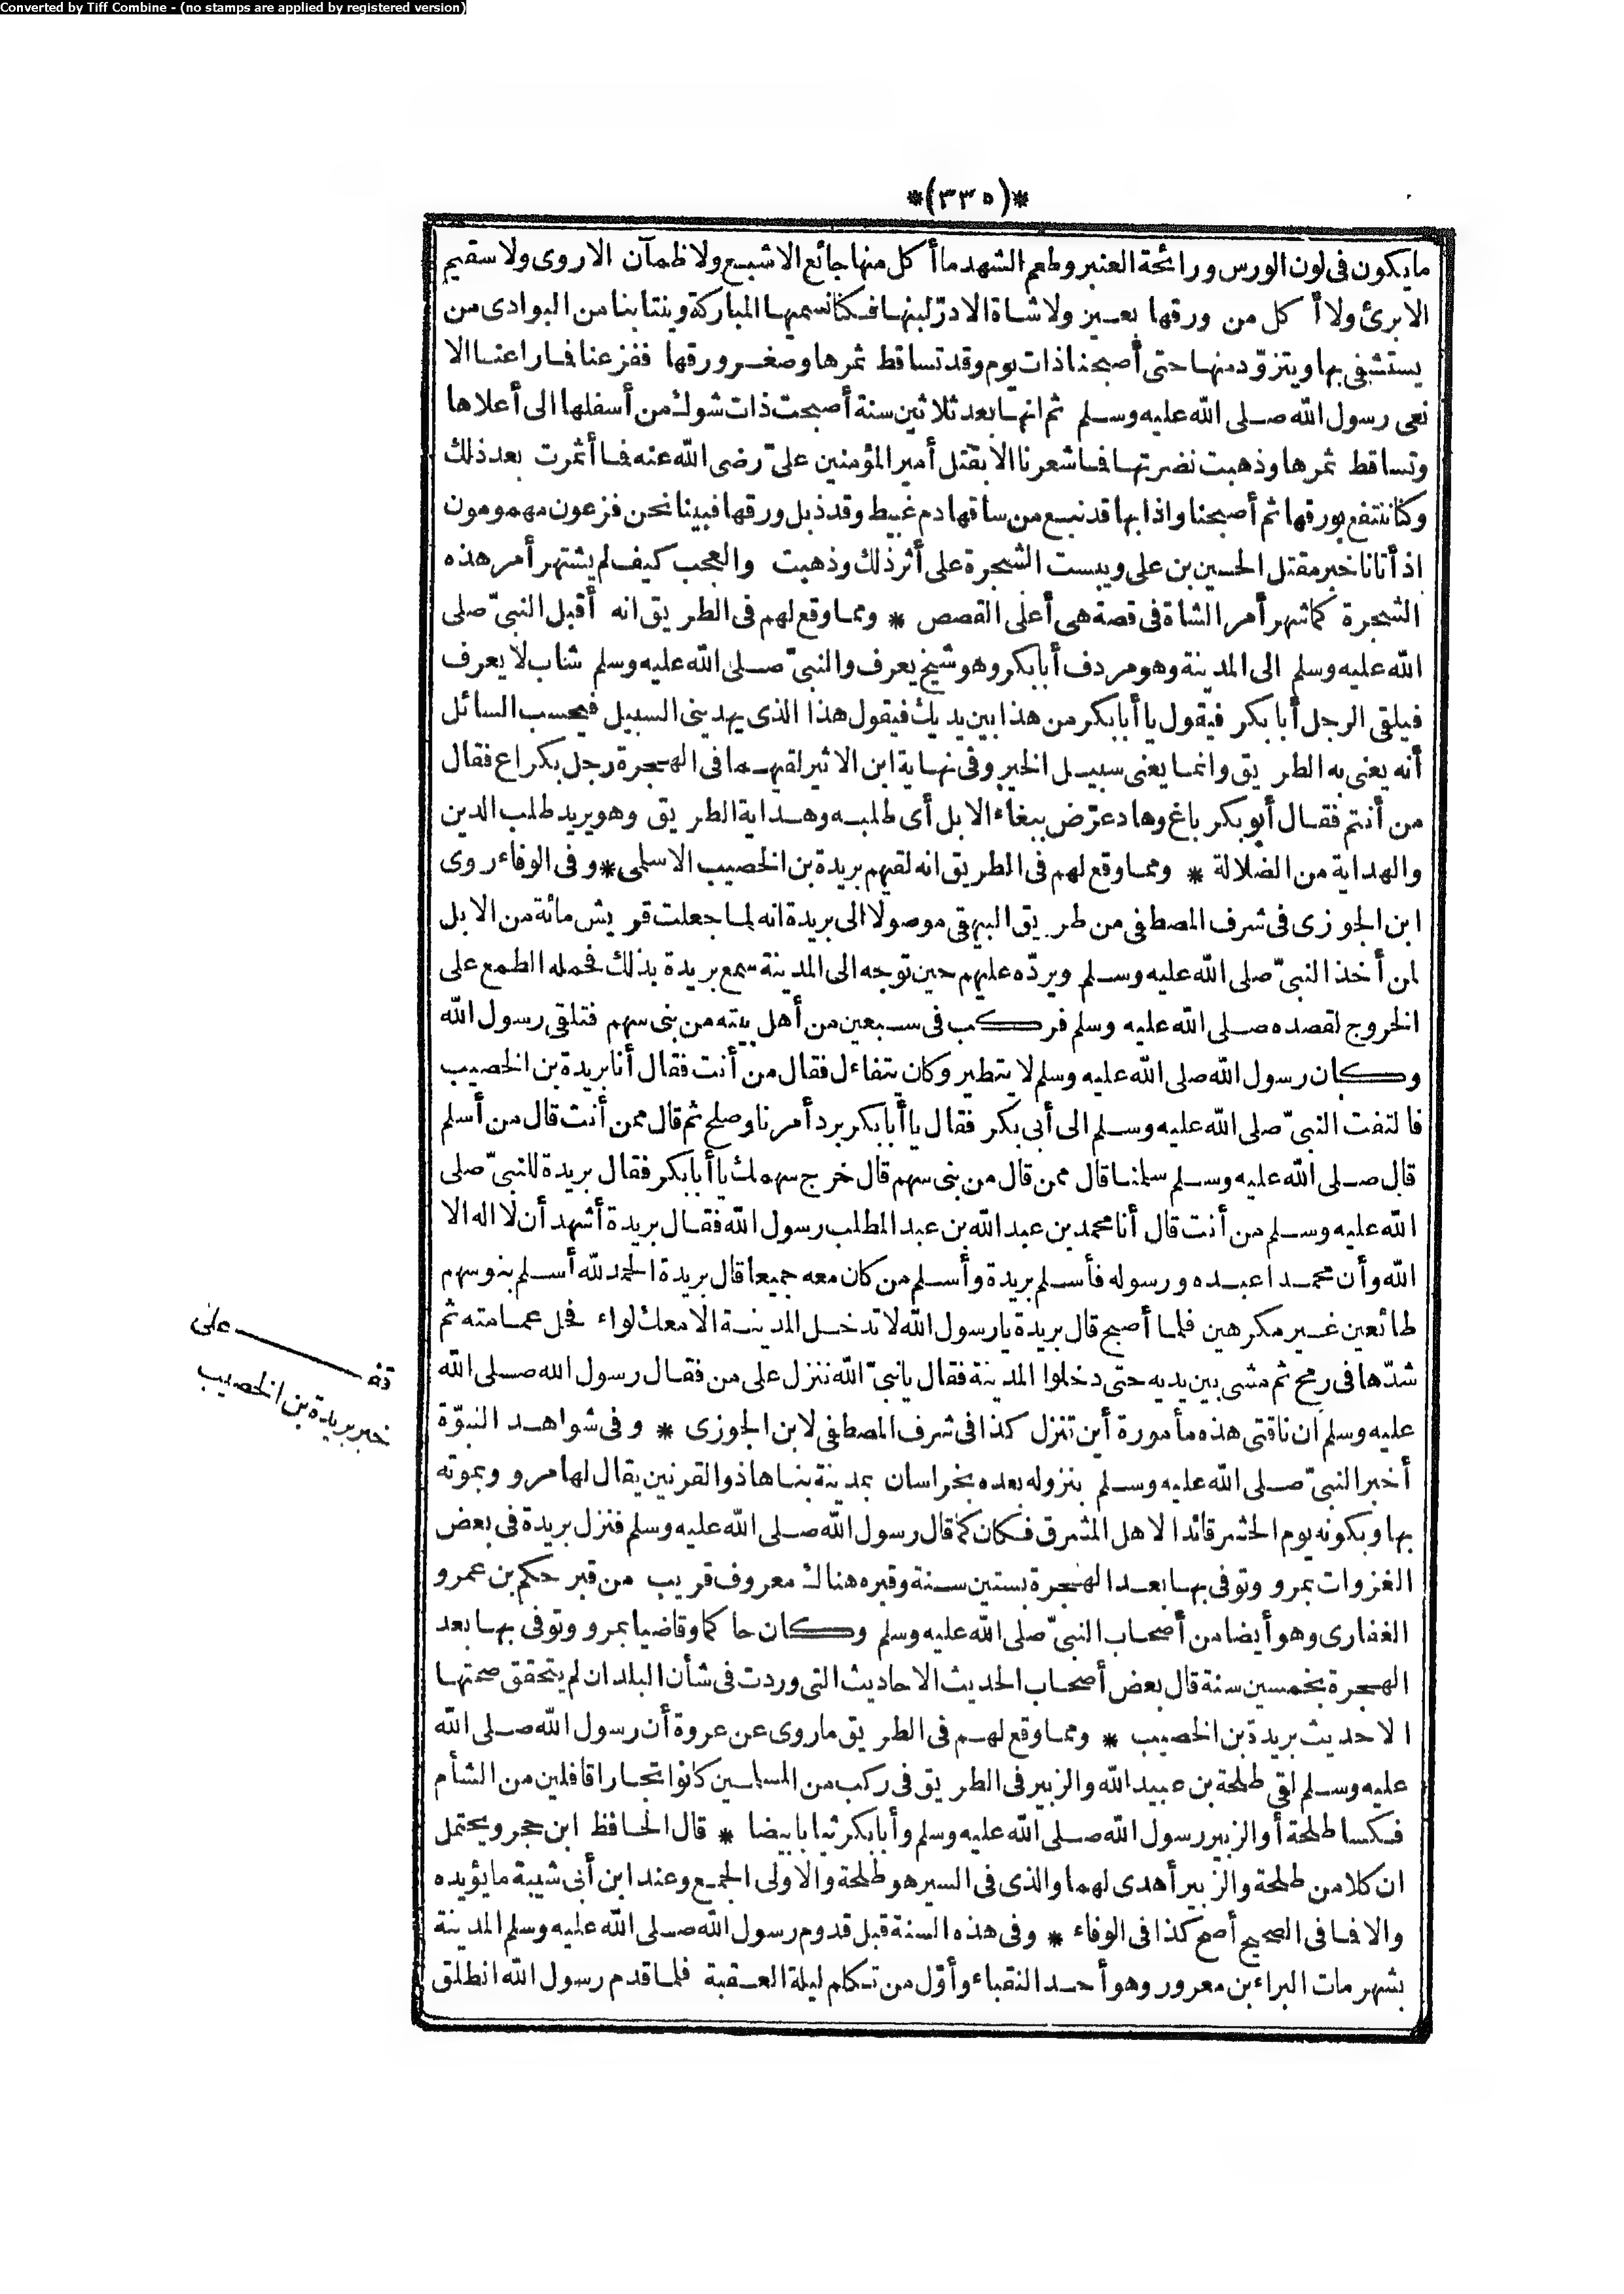 Converted by Tiff Combine - (no stamps are applied by registered version)
*(٣٣٥)*
ما يكون فى لون الورس ورائحة العنبر وطعم الشهد ما أكل منها جائع الا شبع ولا ظمآن الا روى ولا سقيم
الا برئ ولا أكل من ورقها بعير ولا شاة الا درّ لبنها فكنا نسميها المباركة وينتابنا من البوادى من
يستشفى بها ويتزوّد منها حتى أصبحنا ذات يوم وقد تساقط ثمرها وصغر ورقها ففزعنا فما راعنا الا
نعى رسول الله صلى الله عليه وسلم ثم انها بعد ثلاثين سنة أصبحت ذات شوك من أسفلها الى أعلاها
وتساقط ثمرها وذهبت نضرتها فما شعرنا الا بقتل أمير المؤمنين علىّ رضى الله عنه فما أثمرت بعد ذلك
وكنا ننتفع بورقها ثم أصبحنا واذا بها قد نبع من ساقها دم غبيط وقد ذبل ورقها فبينا نحن فزعون مهمومون
اذ أتانا خبر مقتل الحسين بن على ويبست الشجرة على أثر ذلك وذهبت والعجب كيف لم يشتهر أمر هذه
الشجرة كما شهر أمر الشاة فى قصة هى أعلى القصص * ومما وقع لهم فى الطريق انه أقبل النبىّ صلى
الله عليه وسلم الى المدينة وهو مردف أبا بكر وهو شيخ يعرف والنبىّ صلى الله عليه وسلم شاب لا يعرف
فيلقى الرجل أبا بكر فيقول يا أبا بكر من هذا بين يديك فيقول هذا الذى يهدينى السبيل فيحسب السائل
أنه يعنى به الطريق وانما يعنى سبيل الخير وفى نهاية ابن الاثير لقيهما فى الهجرة رجل بكراع فقال
من أنتم فقال أبو بكر باغ وهاد عرّض ببغاء الابل أى طلبه وهداية الطريق وهو يريد طلب الدين
والهداية من الضلالة * ومما وقع لهم فى الطريق انه لقيهم بريدة بن الخصيب الاسلمى * وفى الوفاء روى
ابن الجوزى فى شرف المصطفى من طريق البيهقى موصولا الى بريدة انه لما جعلت قريش مائة من الابل
لمن أخذ النبىّ صلى الله عليه وسلم ويردّه عليهم حين توجه الى المدينة سمع بريدة بذلك فحمله الطمع على
الخروج لقصده صلى الله عليه وسلم فركب فى سبعين من أهل بيته من بنى سهم فتلقى رسول الله
وكان رسول الله صلى الله عليه وسلم لا يتطير وكان يتفاءل فقال من أنت فقال أنا بريدة بن الخصيب
فالتفت النبىّ صلى الله عليه وسلم الى أبى بكر فقال يا أبا بكر برد أمرنا وصلح ثم قال ممن أنت قال من أسلم
قال صلى الله عليه وسلم سلمنا قال ممن قال من بنى سهم قال خرج سهمك يا أبا بكر فقال بريدة للنبىّ صلى
الله عليه وسلم من أنت قال أنا محمد بن عبد الله بن عبد المطلب رسول الله فقال بريدة أشهد أن لا اله الا
الله وأن محمدا عبده ورسوله فأسلم بريدة وأسلم من كان معه جميعا قال بريدة الحمد لله أسلم بنو سهم
طائعين غير مكرهين فلما أصبح قال بريدة يا رسول الله لا تدخل المدينة الا معك لواء فحل عمامته ثم
شدّها فى رمح ثم مشى بين يديه حتى دخلوا المدينة فقال يا نبىّ الله تنزل على من فقال رسول الله صلى الله
عليه وسلم ان ناقتى هذه مأمورة أين تنزل كذا فى شرف المصطفى لابن الجوزى * وفى شواهد النبوّة
أخبر النبىّ صلى الله عليه وسلم بنزوله بعده بخراسان بمدينة بناها ذو القرنين يقال لها مرو وبموته
بها وبكونه يوم الحشر قائدا لاهل المشرق فكان كما قال رسول الله صلى الله عليه وسلم فنزل بريدة فى بعض
الغزوات بمرو وتوفى بها بعد الهجرة بستين سنة وقبره هناك معروف قريب من قبر حكم بن عمرو
الغفارى وهو أيضا من أصحاب النبىّ صلى الله عليه وسلم وكان حاكما وقاضيا بمرو وتوفى بها بعد
الهجرة بخمسين سنة قال بعض أصحاب الحديث الاحاديث التى وردت فى شأن البلدان لم يتحقق صحتها
الا حديث بريدة بن الخصيب * ومما وقع لهم فى الطريق ما روى عن عروة أن رسول الله صلى الله
عليه وسلم لقى طلحة بن عبيد الله والزبير فى الطريق فى ركب من المسلمين كانوا تجارا قافلين من الشأم
فكسا طلحة أو الزبير رسول الله صلى الله عليه وسلم وأبا بكر ثيابا بيضا * قال الحافظ ابن حجر ويحتمل
ان كلا من طلحة والزبير أهدى لهما والذى فى السير هو طلحة والاولى الجمع وعند ابن أبى شيبة ما يؤيده
والا فما فى الصحيح أصح كذا فى الوفاء * وفى هذه السنة قبل قدوم رسول الله صلى الله عليه وسلم المدينة
بشهر مات البراء بن معرور وهو أحد النقباء وأوّل من تكلم ليلة العقبة فلما قدم رسول الله انطلق
قف على
خبر بريدة بن الخصيب